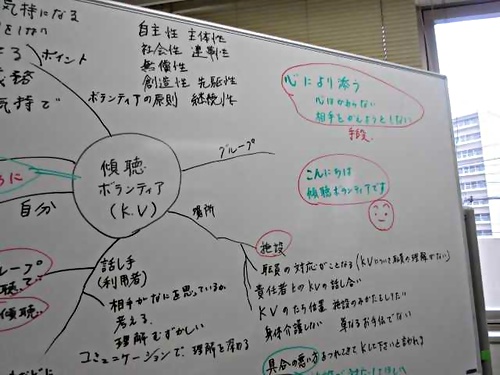 気持になる
ポイント
気持で
自主性 主体性
社会性 連帯性
無償性
創造性 先駆性
ボランティアの原則 継続性
心により添う
心はかわらない
手段
グループ
傾聴
ボランティア
(KV)
こんにちは
傾聴ボランティアです
自分
場所
施設
職員の対応がことなる(KVについて職員の理解がない)
責任者とKVの話し合い
KVのたち位置 施設のみかたもしりたい
身体介護しない 単なるお手伝でない
ループ
傾聴
話し手
(利用者)
相手がなにを思っているか
考える
理解むずかしい
コミュニケーションで 理解を深める
具合の悪い方